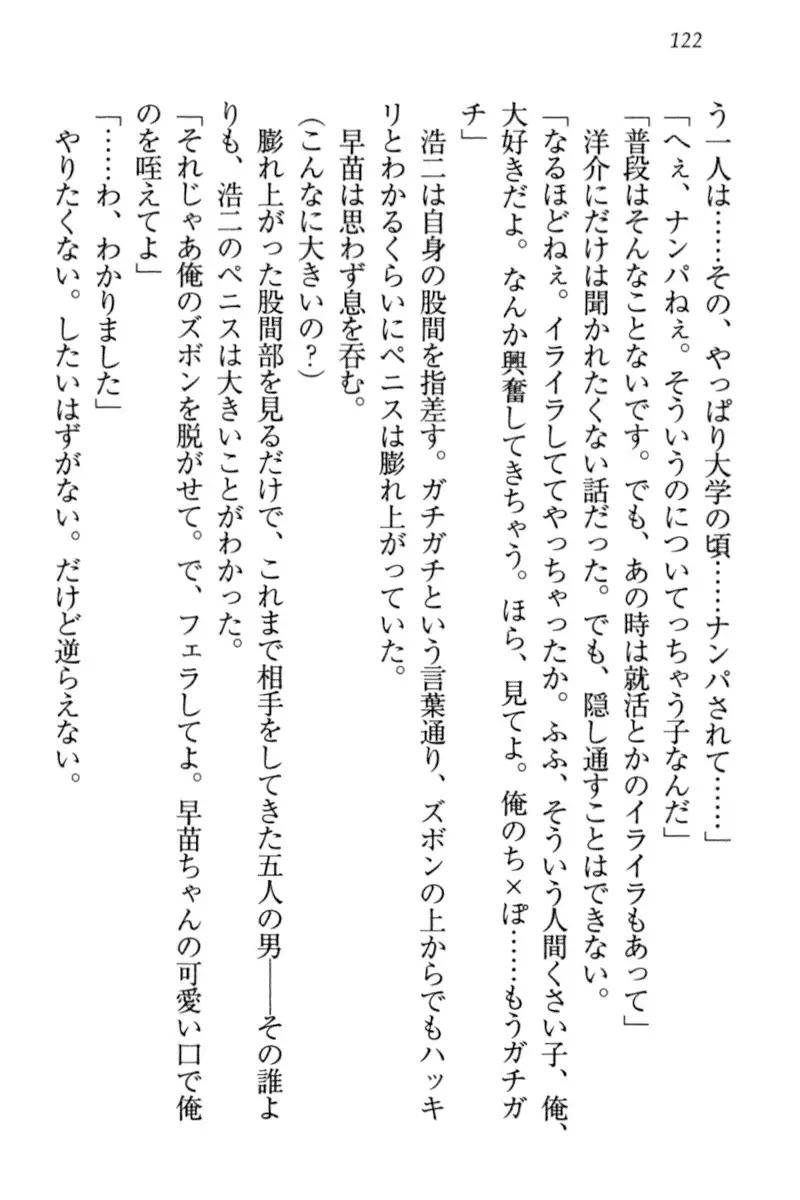 122
う一人は……その、やっぱり大学の頃……ナンパされて……」
「へぇ、ナンパねぇ。そういうのについてっちゃう子なんだ」
「普段はそんなことないです。でも、あの時は就活とかのイライラもあって」
洋介にだけは聞かれたくない話だった。でも、隠し通すことはできない。
「なるほどねぇ。イライラしててやっちゃったか。ふふ、そういう人間くさい子、俺、
大好きだよ。なんか興奮してきちゃう。ほら、見てよ。俺のち×ぽ……もうガチガ
チ」
浩二は自身の股間を指差す。ガチガチという言葉通り、ズボンの上からでもハッキ
リとわかるくらいにペニスは膨れ上がっていた。
早苗は思わず息を呑む。
（こんなに大きいの？）
膨れ上がった股間部を見るだけで、これまで相手をしてきた五人の男――その誰よ
りも、浩二のペニスは大きいことがわかった。
「それじゃあ俺のズボンを脱がせて。で、フェラしてよ。早苗ちゃんの可愛い口で俺
のを咥えてよ」
「……わ、わかりました」
やりたくない。したいはずがない。だけど逆らえない。